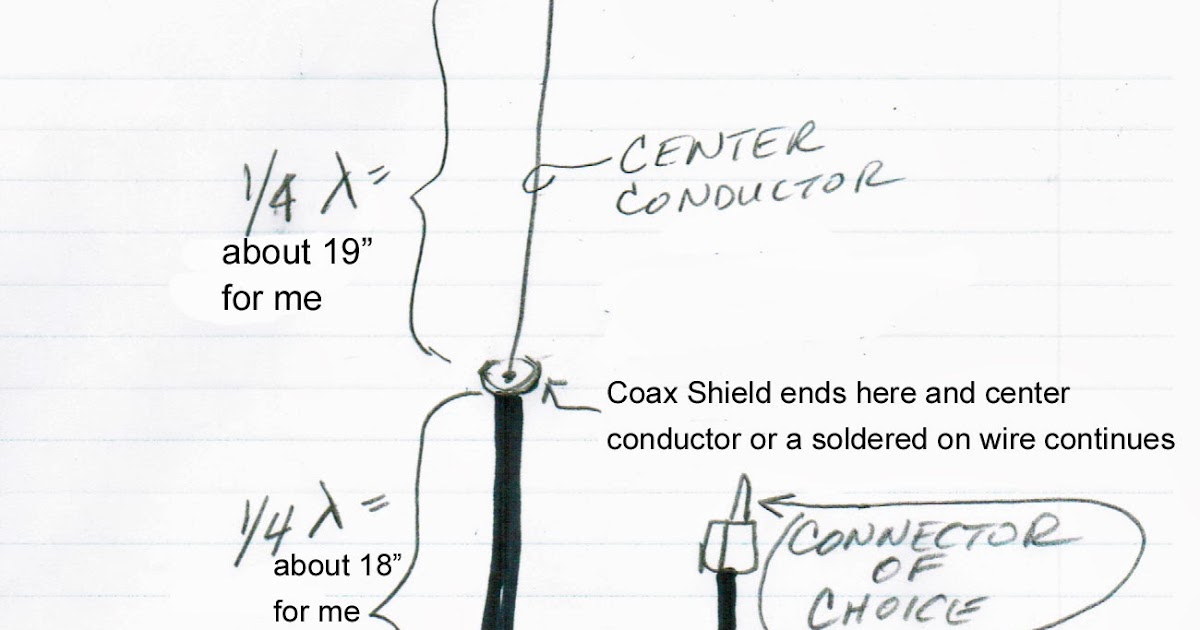 CENTER
CONDUCTOR
1/4 λ =
about 19”
for me
Coax Shield ends here and center
conductor or a soldered on wire continues
1/4 λ =
about 18”
for me
CONNECTOR
OF
CHOICE